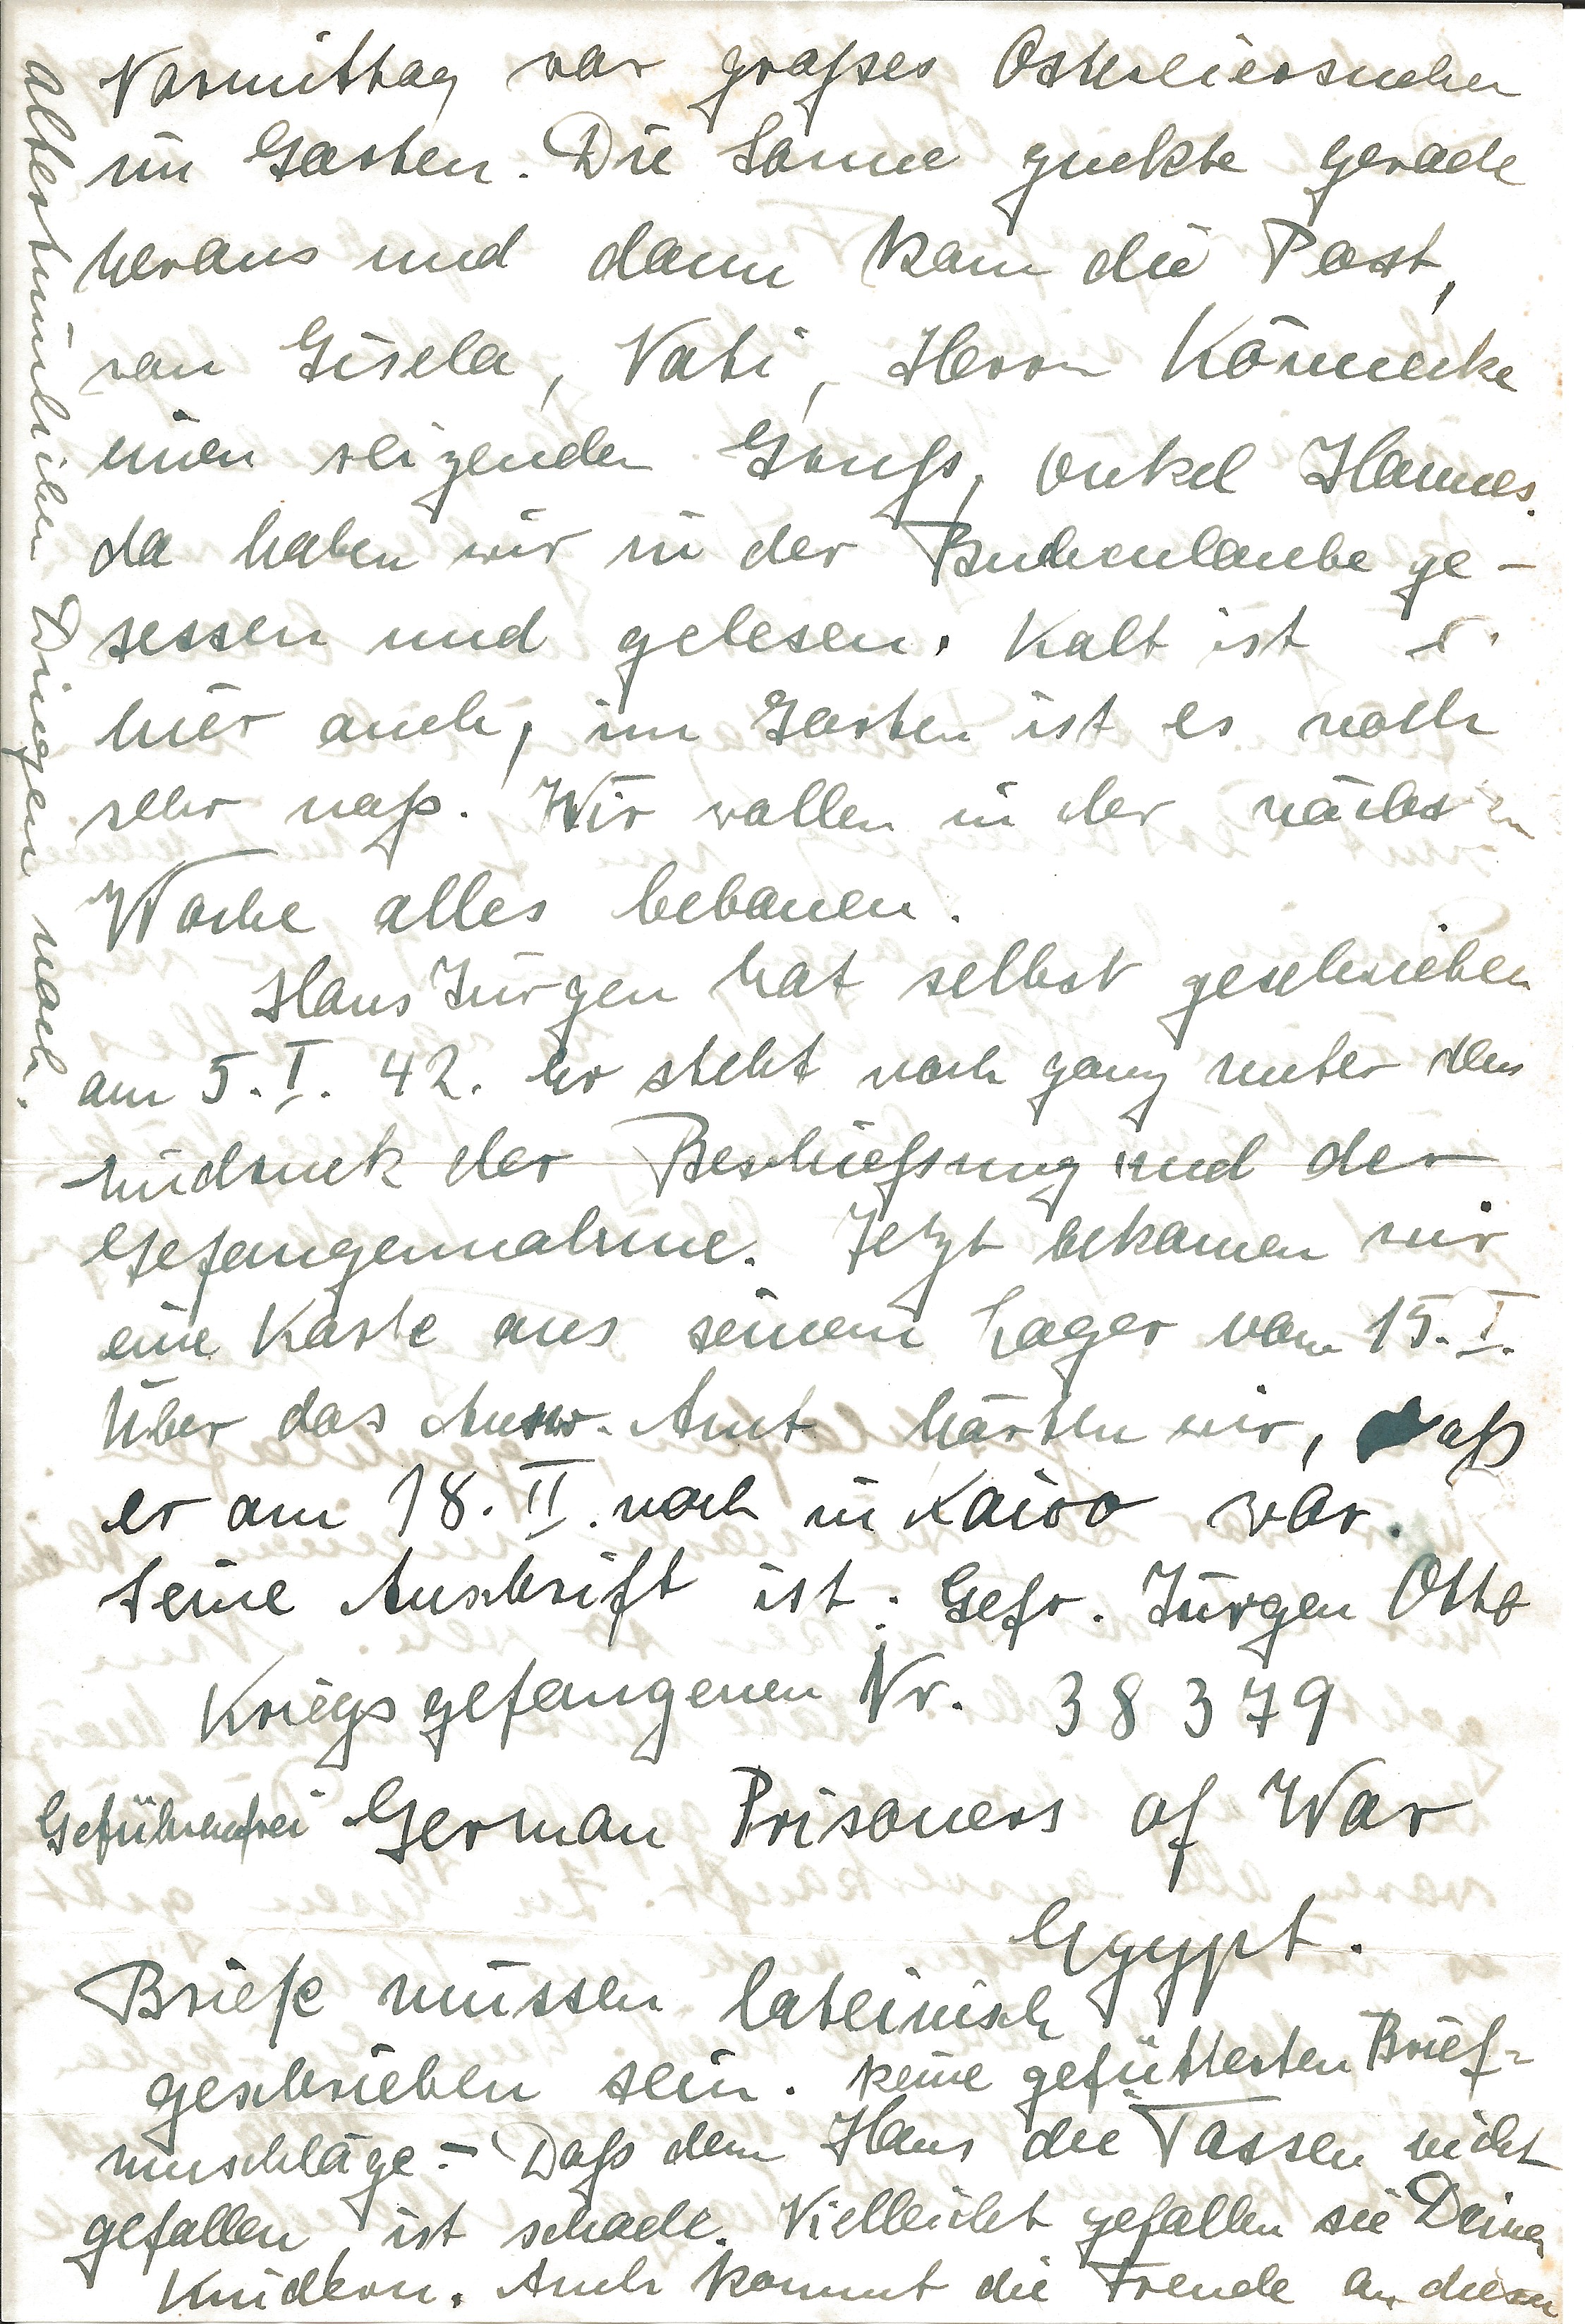 Vormittag war großes Ostereiersuchen
im Garten. Die Sonne guckte gerade
heraus und dann kam die Post,
von Gisela, Vati, Herrn Könnecke
einen reizenden Gruß, Onkel Hannes.
da haben wir in der Buchenlaube ge-
sessen und gelesen. Kalt ist
hier auch, im Garten ist es noch
sehr naß. Wir wollen in der nächsten
Woche alles bebauen.
Hans Jürgen hat selbst geschrieben
am 5. I. 42. Er steht noch ganz unter dem
Eindruck der Beschießung und der
Gefangennahme. Jetzt bekamen wir
eine Karte aus seinem Lager vom 15. I.
Über das Ausw. Amt hörten wir, daß
er am 18. II. noch in Kairo war.
Seine Anschrift ist: Gefr. Jürgen Otto
Kriegsgefangenen Nr. 38379
Gebührenfrei German Prisoners of War
Egypt.
Briefe müssen lateinisch
geschrieben sein. keine gefütterten Brief-
umschläge. - Daß dem Hans die Tassen nicht
gefallen, ist schade. Vielleicht gefallen sie Deinen
Kindern. Auch kommt die Freude an diesen
altertümlichen Dingen noch.